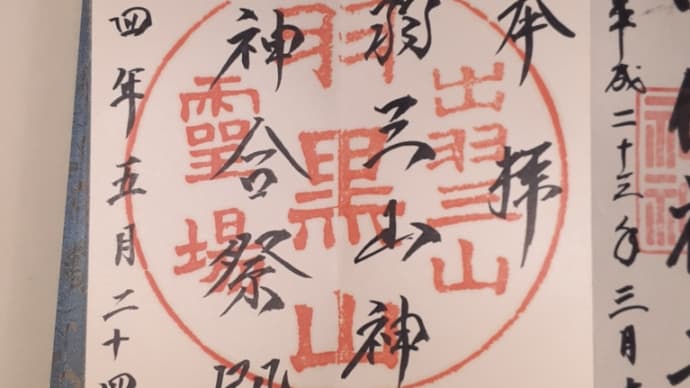 平成二十三年三月
奉拝
羽三山神
神合祭
四年五月二十四
出羽三山
羽黒山
靈場